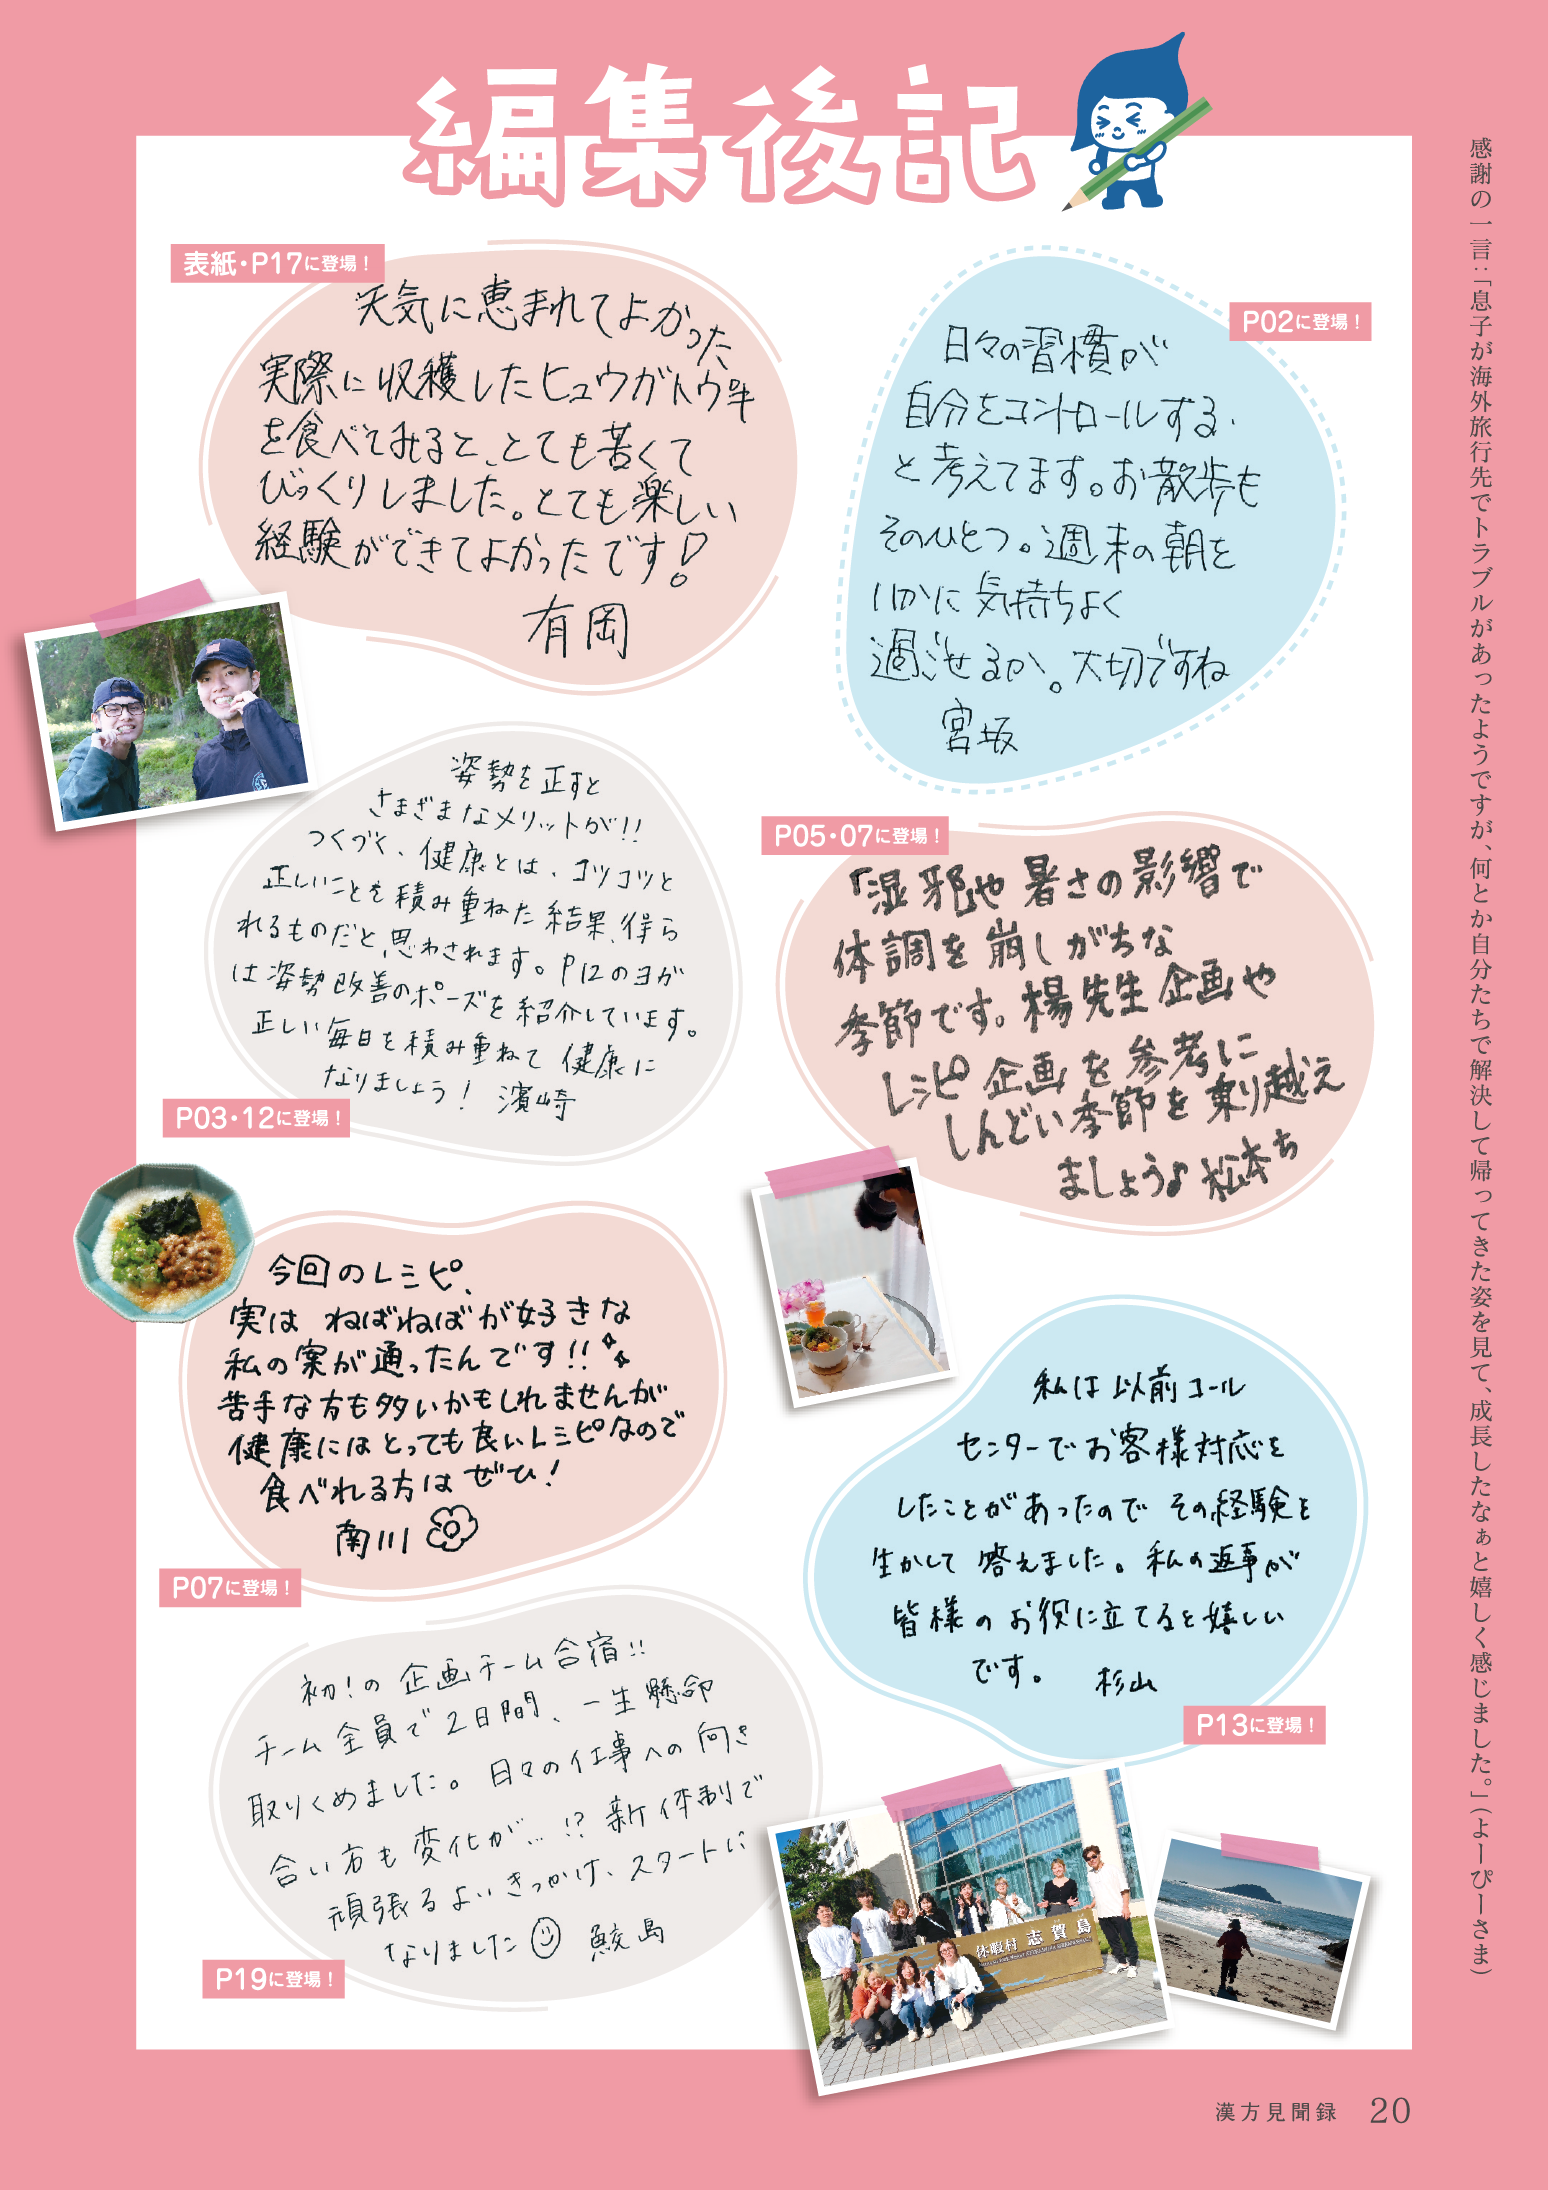 編集後記
表紙・P17に登場！
天気に恵まれてよかった
実際に収穫したヒュウガトウキ
を食べてみると、とても苦くて
びっくりしました。とても楽しい
経験ができてよかったです！
有岡
P02に登場！
日々の習慣が
自分をコントロールする、
と考えてます。お散歩も
そのひとつ。週末の朝を
いかに気持ちよく
過ごせるか。大切ですね
宮坂
姿勢を正すと
さまざまなメリットが!!
つくづく、健康とは、コツコツと
正しいことを積み重ねた結果、得ら
れるものだと、思わされます。P12のヨガ
は姿勢改善のポーズを紹介しています。
正しい毎日を積み重ねて健康に
なりましょう！ 濱崎
P03・12に登場！
P05・07に登場！
「湿邪」や暑さの影響で
体調を崩しがちな
季節です。楊先生企画や
レシピ企画を参考に
しんどい季節を乗り越え
ましょう♪ 松本ち
今回のレシピ、
実は ねばねばが好きな
私の案が通ったんです!!
苦手な方も多いかもしれませんが
健康にはとっても良いレシピなので
食べれる方はぜひ！
南川
P07に登場！
私は以前コール
センターでお客様対応を
したことがあったので その経験を
生かして 答えました。私の返事が
皆様のお役に立てると嬉しい
です。 杉山
P13に登場！
初！の企画チーム合宿!!
チーム全員で2日間、一生懸命
取りくめました。日々の仕事への向き
合い方も変化が…!? 新体制で
頑張るよいきっかけ、スタートに
なりました 鮫島
P19に登場！
休暇村 志賀島
感謝の一言：「息子が海外旅行先でトラブルがあったようですが、何とか自分たちで解決して帰ってきた姿を見て、成長したなぁと嬉しく感じました。」（よーぴーさま）
漢方見聞録 20